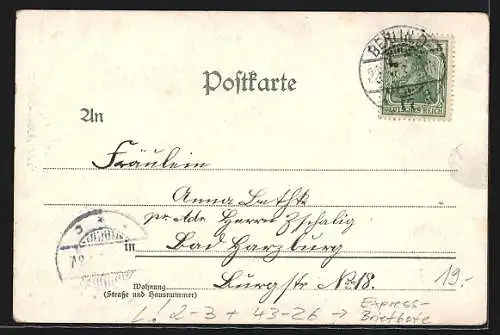 BERLIN
DEUTSCHES REICH
Postkarte
An
Fräulein
Anna Bethk
pr. Adr. Herrn Zschalig
in Bad Harzburg
Wohnung
(Straße und Hausnummer)
Burgstr No 18.
19.-
L! 2-3 + 43-26 → Express-
Briefbote